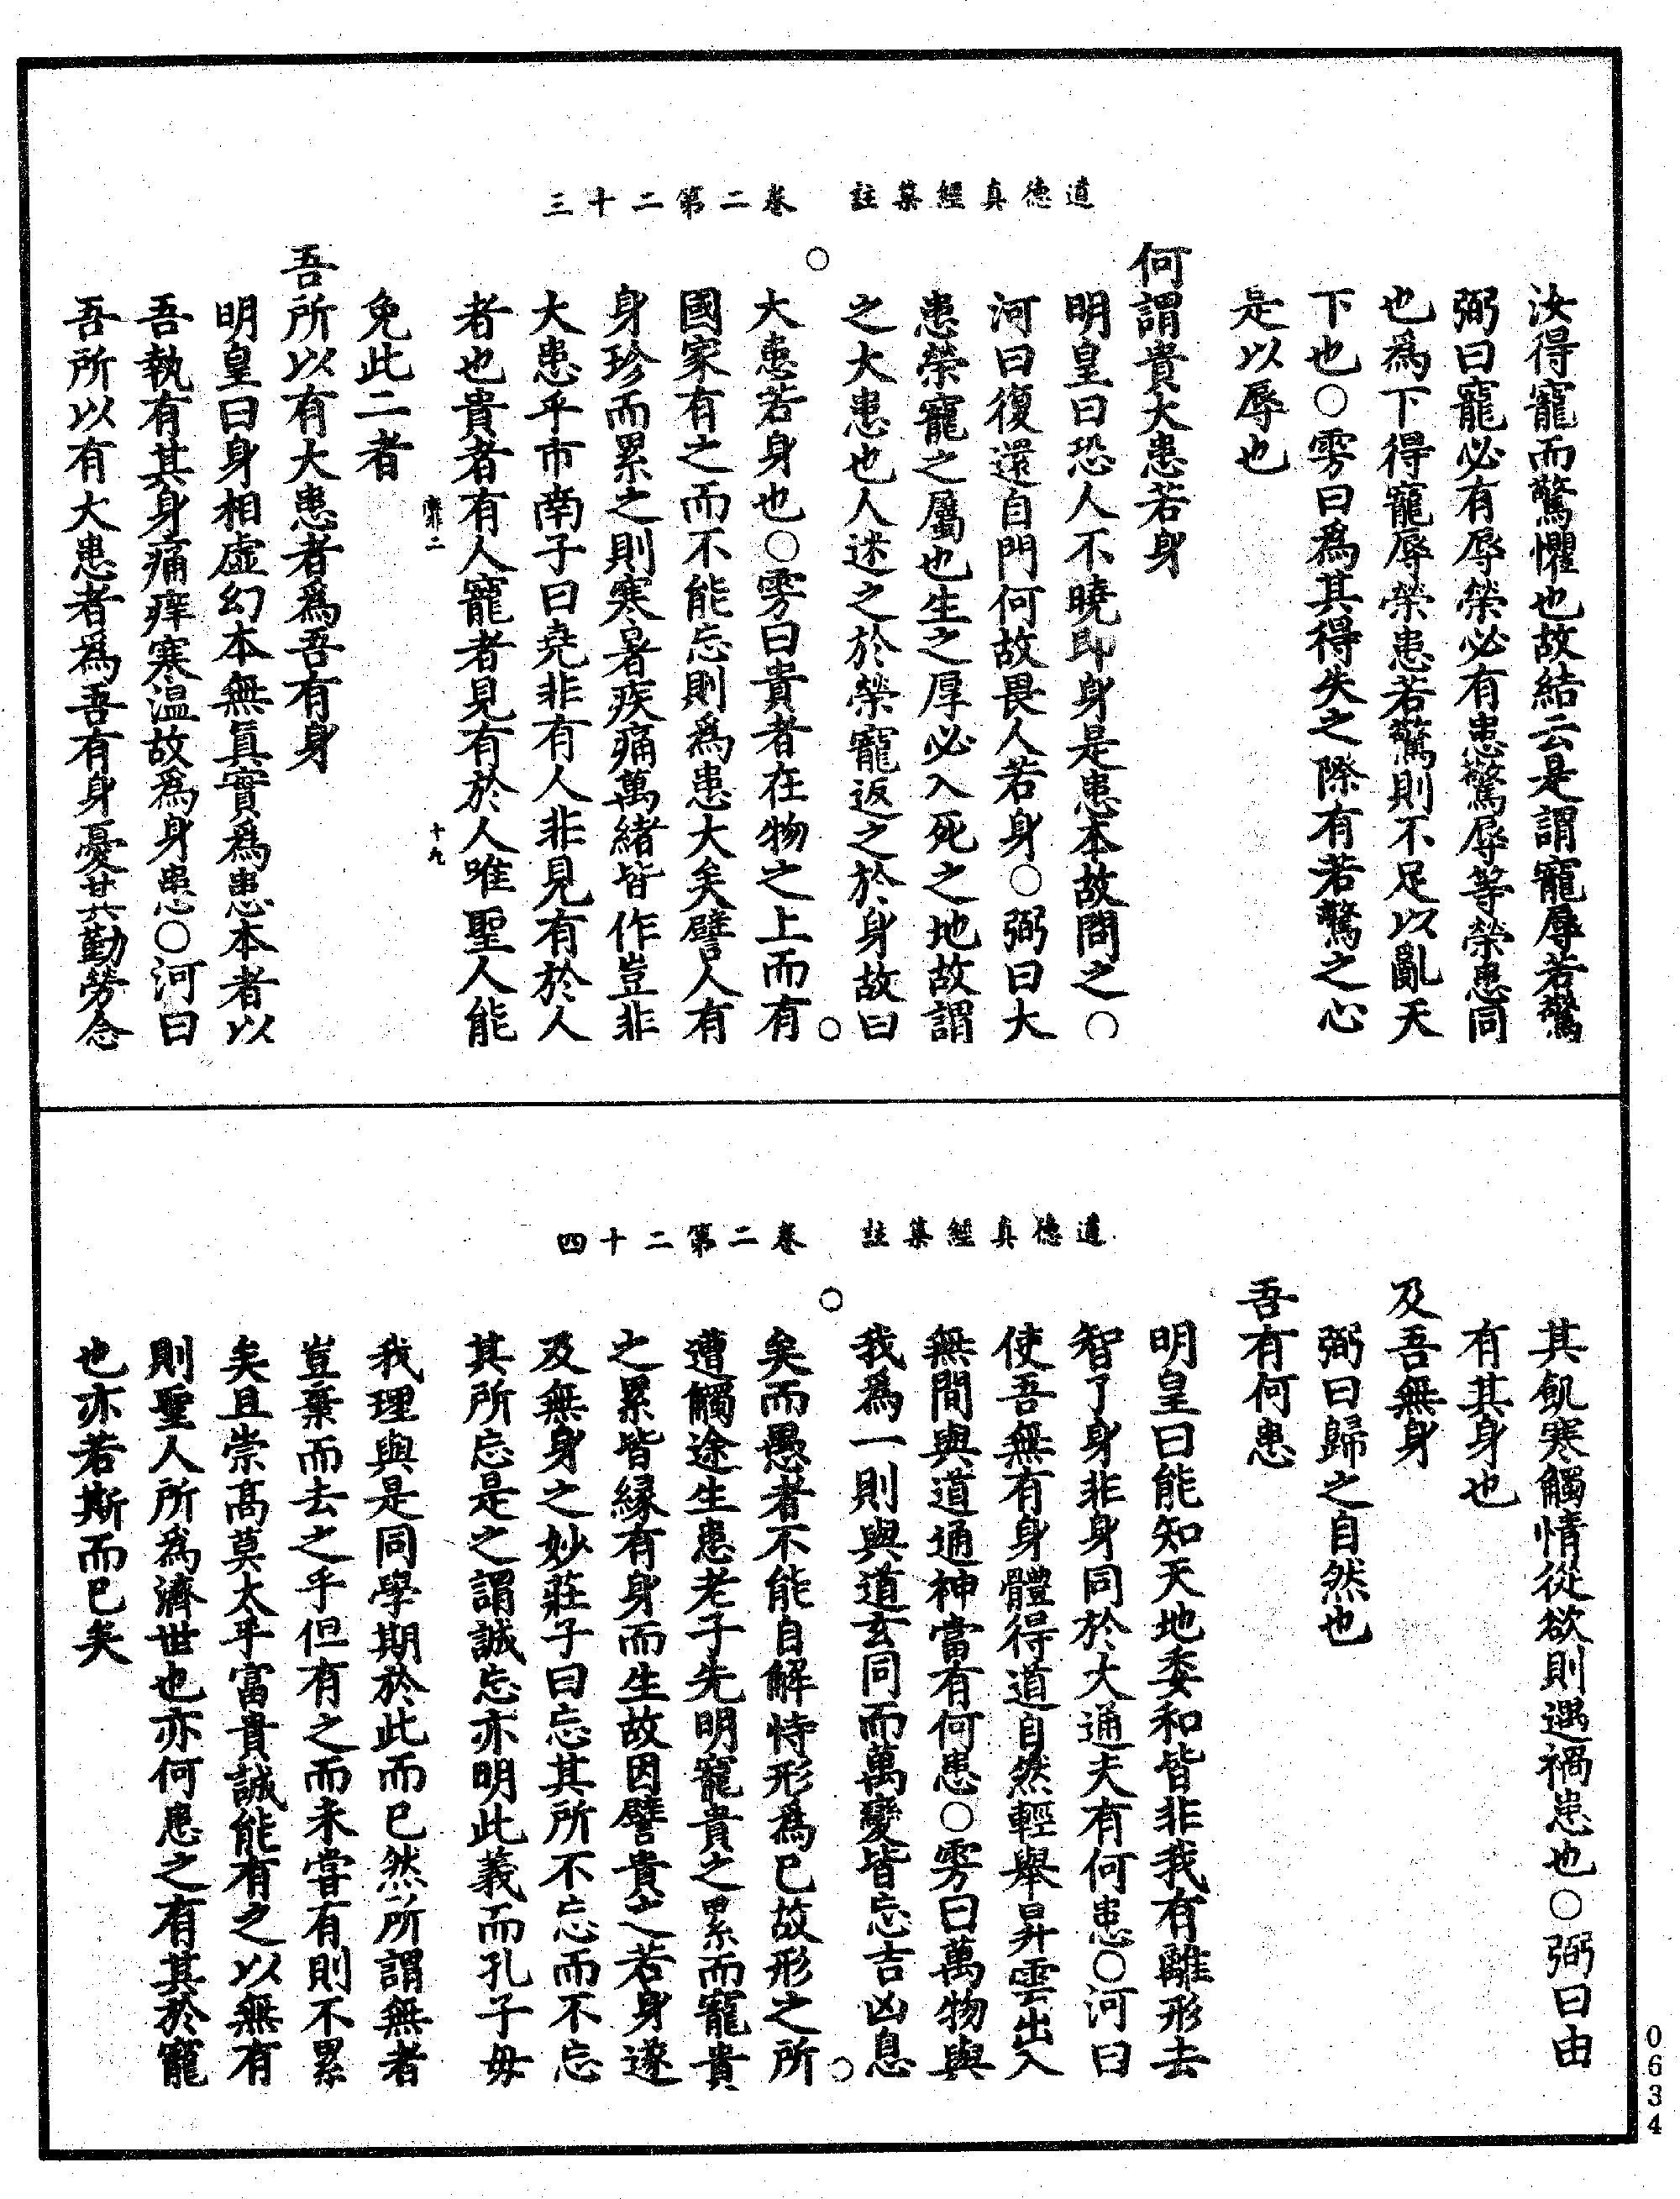 道德真經集註　卷二第二十三
汝得寵而驚懼也故結云是謂寵辱若驚
弼曰寵必有辱榮必有患驚辱等榮患同
也爲下得寵辱榮患若驚則不足以亂天
下也○雱曰爲其得失之際有若驚之心
是以辱也
何謂貴大患若身
明皇曰恐人不曉即身是患本故問之○
河曰復還自門何故畏人若身○弼曰大
患榮寵之屬也生之厚必入死之地故謂
之大患也人迷之於榮寵返之於身故曰
大患若身也○雱曰貴者在物之上而有
國家有之而不能忘則爲患大矣譬人有
身珍而累之則寒暑疾痛萬緒皆作豈非
大患乎市南子曰堯非有人非見有於人
者也貴者有人寵者見有於人唯聖人能
二　十九
免此二者
吾所以有大患者爲吾有身
明皇曰身相虛幻本無真實爲患本者以
吾執有其身痛痒寒温故爲身患○河曰
吾所以有大患者爲吾有身憂其勤勞念
道德真經集註　卷二第二十四
其飢寒觸情從欲則遇禍患也○弼曰由
有其身也
及吾無身
弼曰歸之自然也
吾有何患
明皇曰能知天地委和皆非我有離形去
智了身非身同於大通夫有何患○河曰
使吾無有身體得道自然輕舉昇雲出入
無間與道通神當有何患○雱曰萬物與
我爲一則與道玄同而萬變皆忘吉凶息
矣而愚者不能自解恃形爲已故形之所
遭觸途生患老子先明寵貴之累而寵貴
之累皆緣有身而生故因譬貴之若身遂
及無身之妙莊子曰忘其所不忘而不忘
其所忘是之謂誠忘亦明此義而孔子毋
我理與是同學期於此而已然所謂無者
豈棄而去之乎但有之而未嘗有則不累
矣且崇髙莫大乎富貴誠能有之以無有
則聖人所爲濟世也亦何患之有其於寵
也亦若斯而已矣
0634